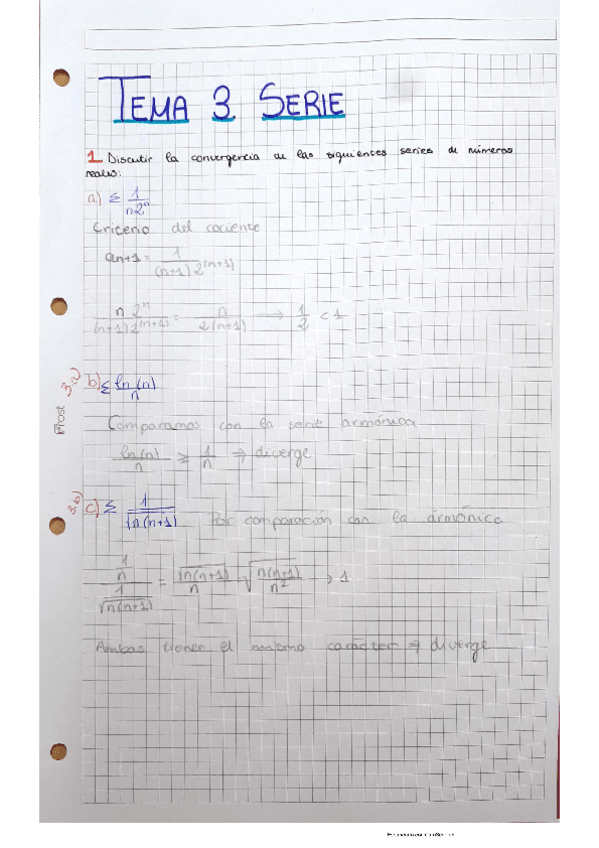 TEMA 3 SERIE
1 Discutir la convergencia de las siguientes series de números
reales:
a) Σ 1/(n2^n)
Criterio del cociente
an+1 = 1/((n+1)2^(n+1))
n 2^n/((n+1)2^(n+1)) = n/(2(n+1)) → 1/2 < 1
3.a) b) Σ ln(n)/n
Comparamos con la serie armónica
ln(n)/n ≥ 1/n ⇒ diverge
3.b) c) Σ 1/√(n(n+1)) Por comparación con la armónica
(1/n)/(1/√(n(n+1))) = √(n(n+1))/n √(n(n+1)/n²) → 1
Ambas tienen el mismo carácter ⇒ diverge